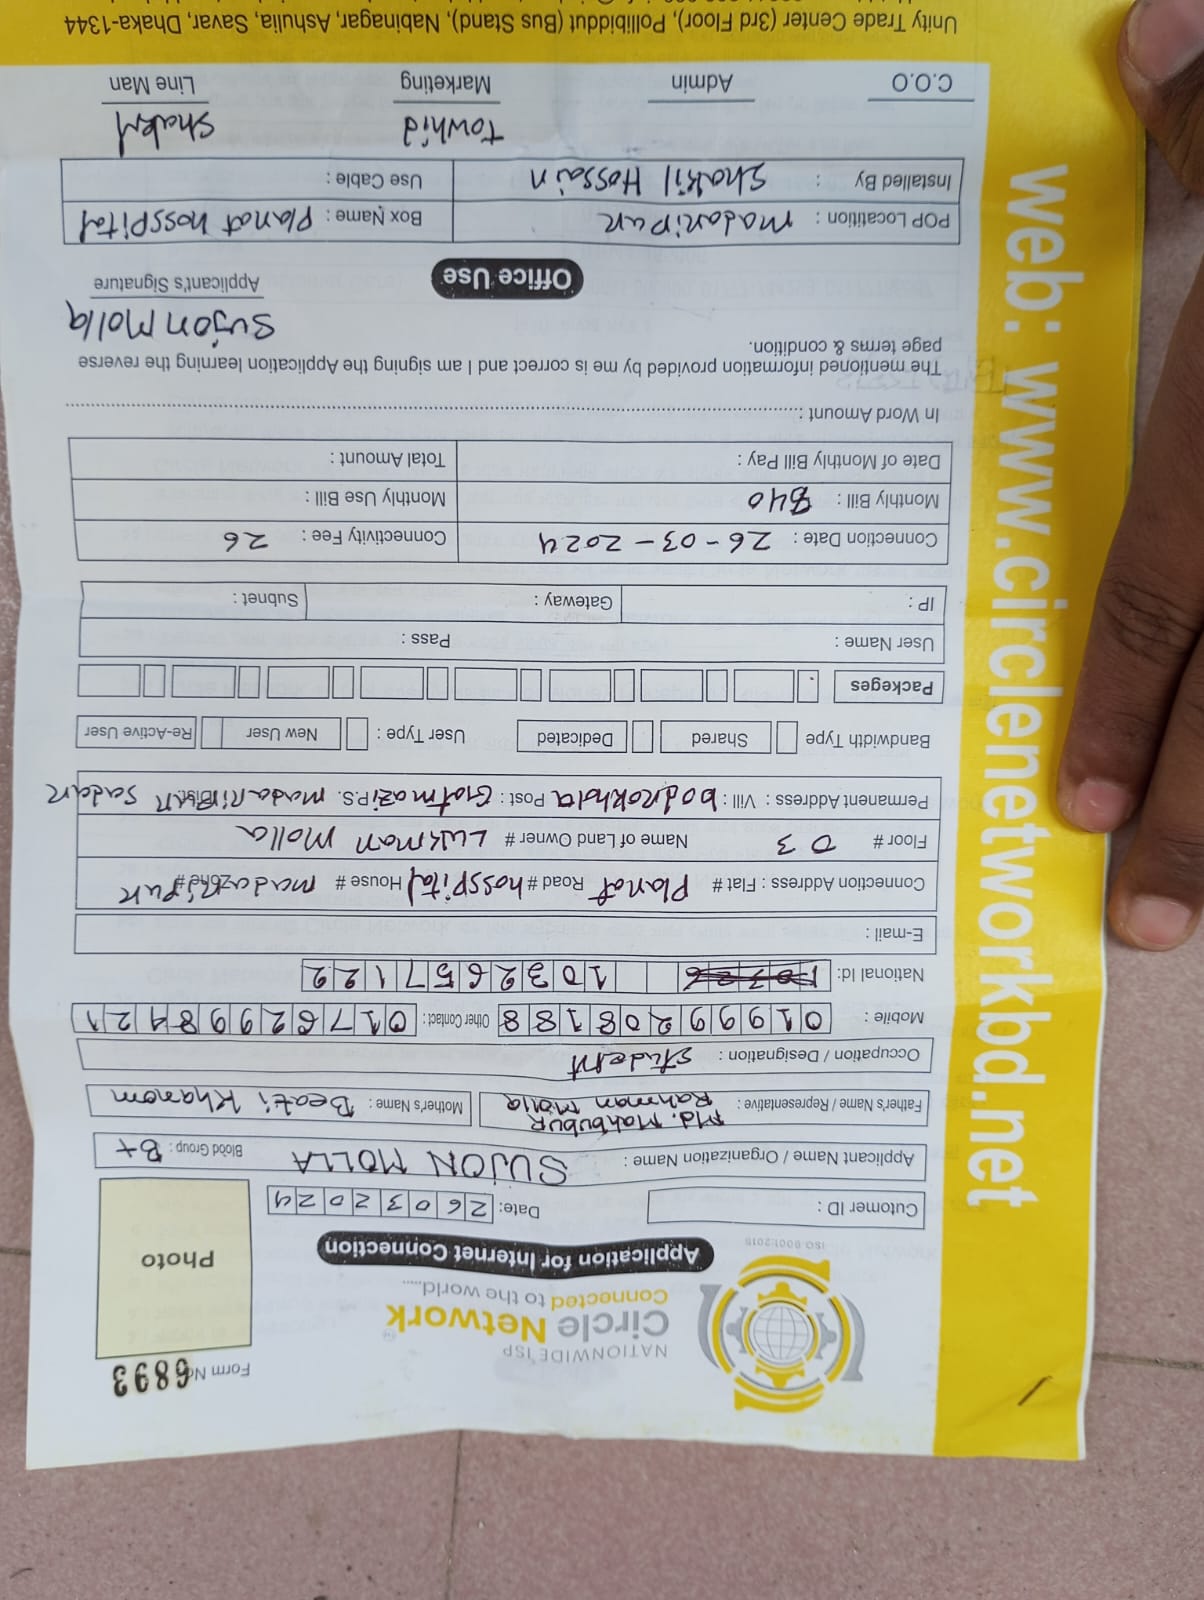 Form No 6893
NATIONWIDE ISP
Circle Network
Connected to the world.....
ISO 9001:2015
Application for Internet Connection
Photo
Cutomer ID :
Date: 26032024
Applicant Name / Organization Name : SUJON MOLLA Blood Group : B+
Father's Name / Representative : Md. Mahbubur Rahman Molla Mother's Name : Beati Khanom
Occupation / Designation : student
Mobile : 01999208188 Other Contact : 01762998421
National Id: 1032657122
E-mail :
Connection Address : Flat # Planat Road # hosspital House # madaripur Zone #
Floor # 03 Name of Land Owner # Lukman Molla
Permanent Address : Vill : bodrokhola Post : Gratmazi P.S. madaripur Dist. sadar
Bandwidth Type Shared Dedicated User Type : New User Re-Active User
Packeges
User Name : Pass :
IP : Gateway : Subnet :
Connection Date : 26-03-2024 Connectivity Fee : 26
Monthly Bill : 840 Monthly Use Bill :
Date of Monthly Bill Pay : Total Amount :
In Word Amount :
The mentioned information provided by me is correct and I am signing the Application learning the reverse
page terms & condition.
Sujon Molla
Applicant's Signature
Office Use
POP Locatition : madaripur Box Name : Planat hosspital
Installed By : Shakil Hossain Use Cable :
Towhid Shakil
C.O.O Admin Marketing Line Man
Unity Trade Center (3rd Floor), Pollibiddut (Bus Stand), Nabinagar, Ashulia, Savar, Dhaka-1344
web: www.circlenetworkbd.net